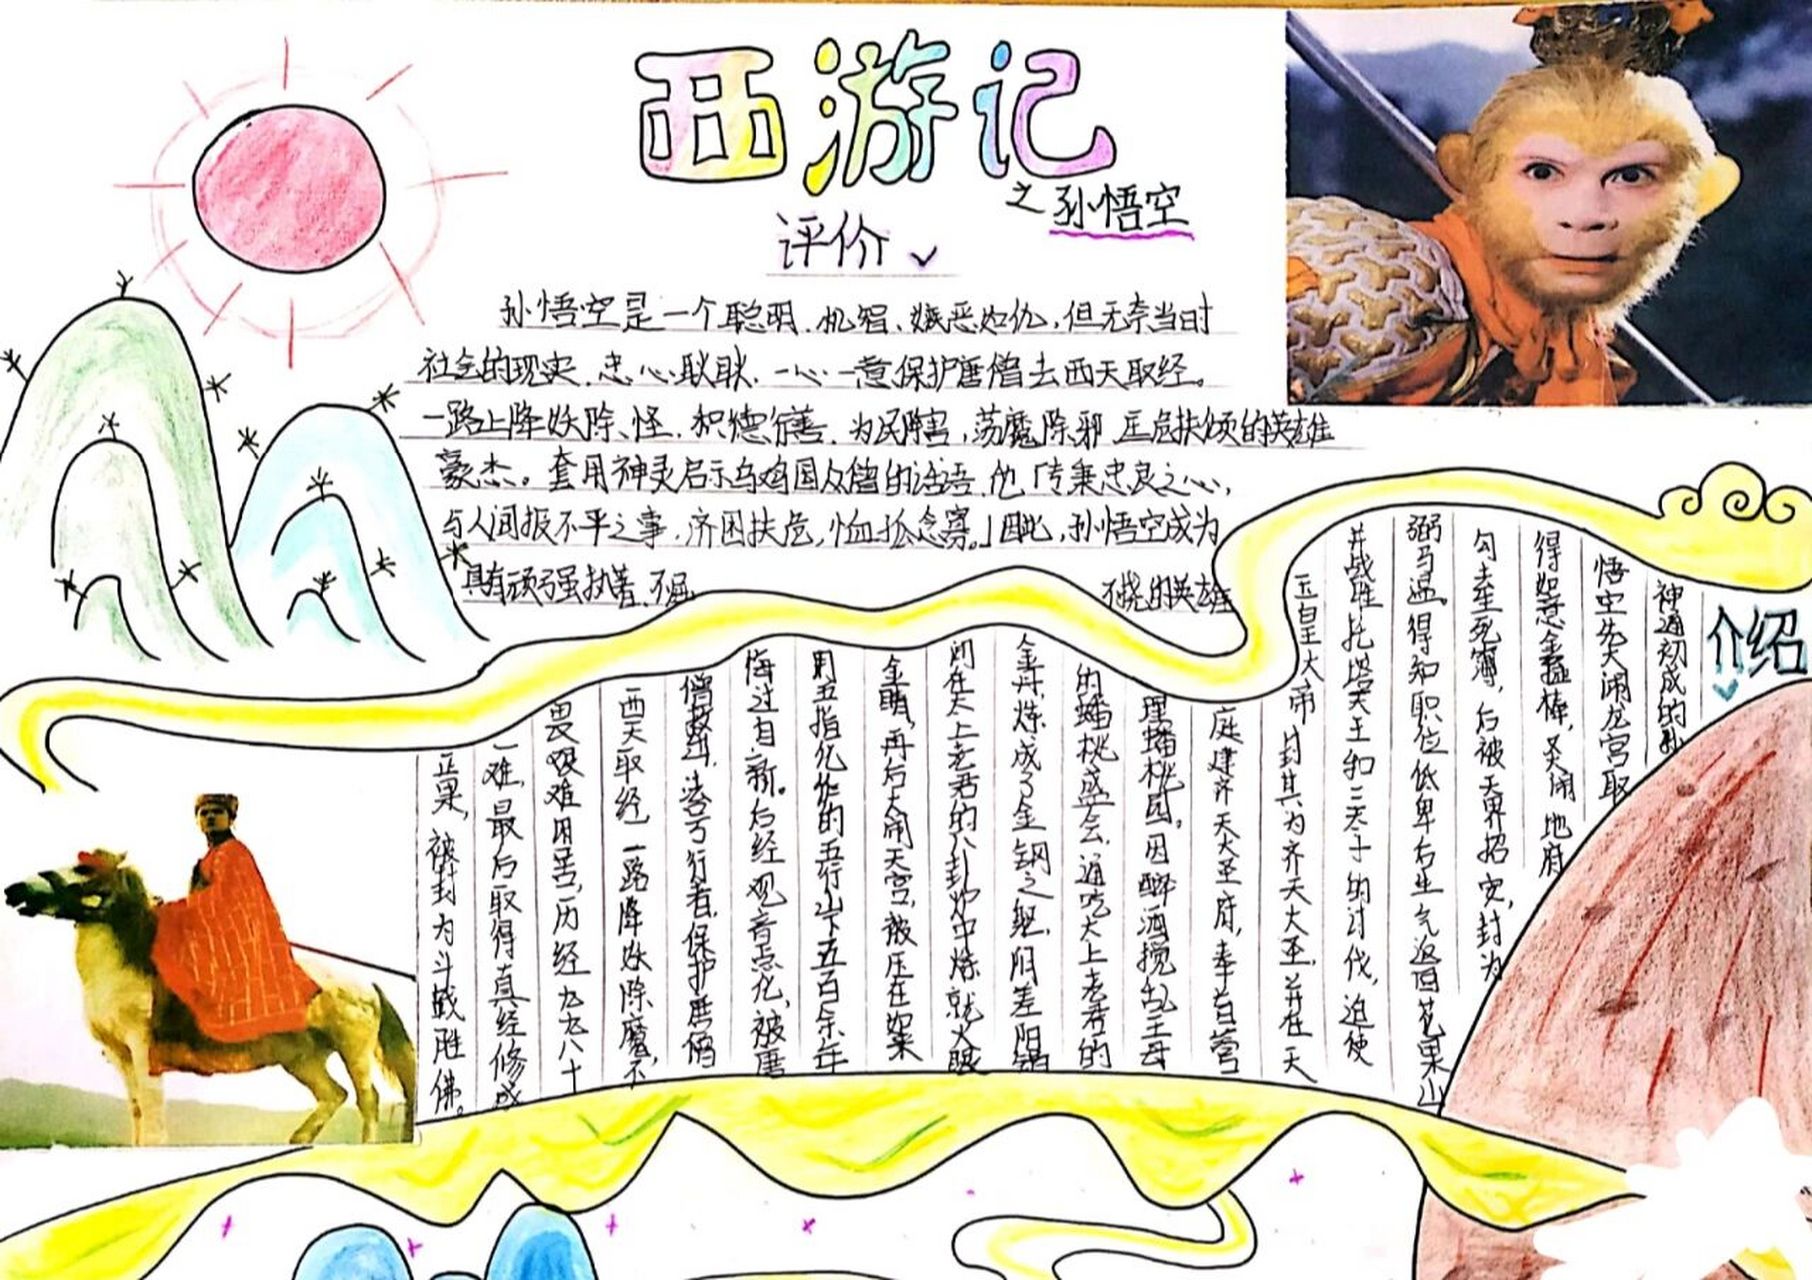 西游记
之孙悟空
评价
孙悟空是一个聪明、机智、嫉恶如仇,但无奈当时
社会的现实,忠心耿耿,一心一意保护唐僧去西天取经。
一路上降妖除怪,积德行善,为民除害,荡魔除邪,匡危扶倾的英雄
豪杰。套用神灵启示乌鸡国众僧的话语,他「专秉忠良之心,
与人间报不平之事,济困扶危,恤孤念寡。」因此,孙悟空成为
具有顽强执着、不屈
不挠的英雄
介绍
神通初成的孙
悟空先大闹龙宫取
得如意金箍棒,又闹地府
勾去生死簿,后被天界招安,封为
弼马温。得知职位低卑后生气返回花果山
并战胜托塔天王和三太子的讨伐,迫使
玉皇大帝封其为齐天大圣,并在天
庭建齐天大圣府,奉旨管
理蟠桃园。因醉酒搅乱王母
的蟠桃盛会,通吃太上老君的
金丹,炼成了金钢之躯,阴差阳错
间在太上老君的八卦炉中炼就火眼
金睛,再后大闹天宫,被压在如来
用五指化作的五行山下五百余年
悔过自新。后经观音点化,被唐
僧救出,法号行者,保护唐僧
西天取经,一路降妖除魔,不
畏艰难困苦,历经九九八十
一难,最后取得真经修成
正果,被封为斗战胜佛。